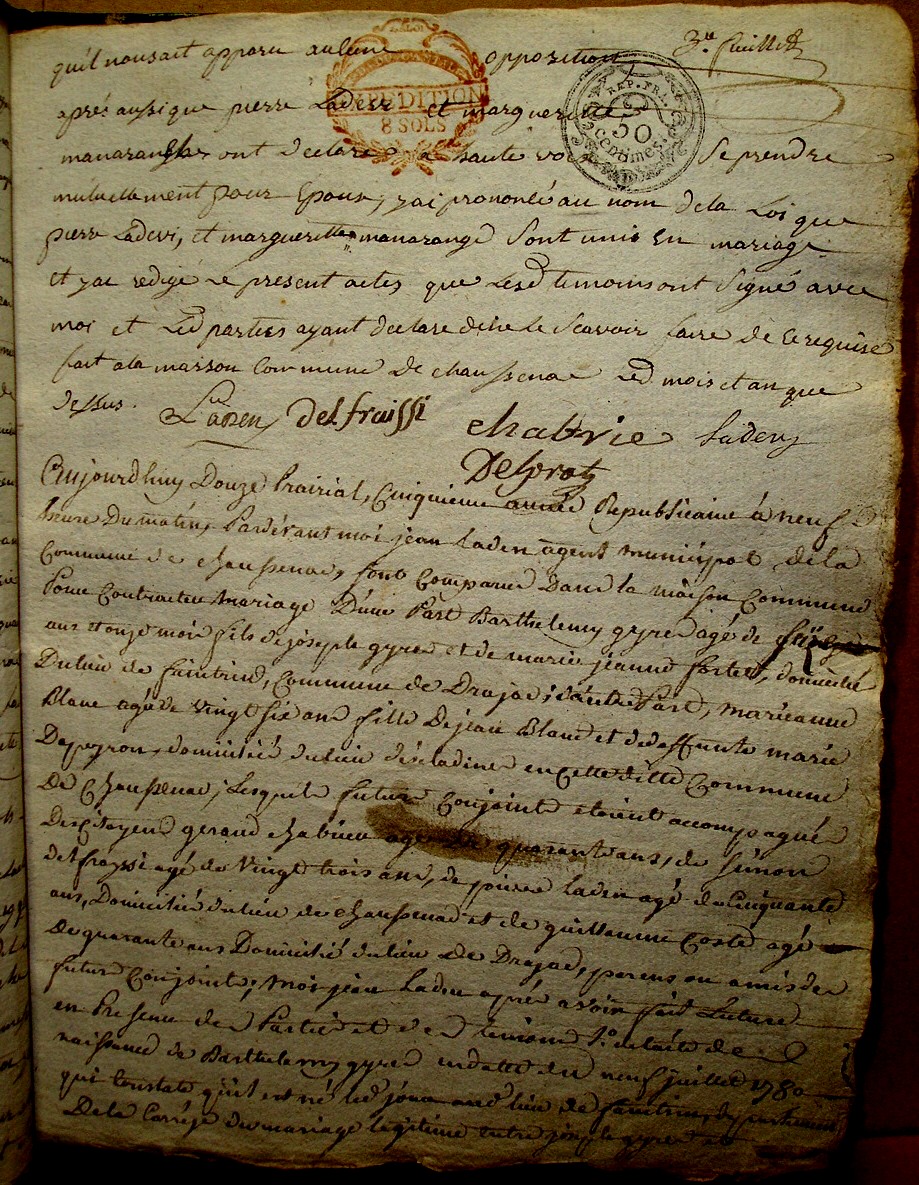 3e. feuillet
qu'il nous ait apparu aulcune opposition
LA LOI
EXPEDITION
8 SOLS
REP. FRA.
50
centimes
après aussi que pierre Ladevz et marguerite
manaranche ont declare a haute voix Se prendre
mutuellement pour Epoux, j'ai prononcé au nom de la Loi que
pierre Ladevi, et margueritte manarange Sont unis En mariage
Et j'ai redigé Le present actes que Lesd temoins ont Signé avec
moi et Lesd parties ayant declare de ne le Scavoir faire de ce requise
fait a la maison Commune de chaussenac Lesd mois et an que
dessus. Laden delfraissi chabrie Laden
Delprat
Aujourdhuy Douze Prairial, Cinquieme année Republicaine à neuf
heure Du matin, Pardevant moi jean Laden agent municipal de la
Commune de chaussenac, sont Comparus Dans la maison Commune
Pour Contracter mariage D'une Part Barthelemy gyre agé de
ans et onze mois fils de joseph gyre et de marie jeanne fortet, domicilié
Du lieu de , Commune de Drajac; d'autre Part, marieanne
Blanc agée de vingt six ans fille De jean Blanc et de deffunte marie
Depeyron, domicilié du lieu d'escladine en cette ditte Commune
De Chaussenac, Lesquels futurs Conjoints etoient accompagné
Des Citoyens geraud chabrier agé De quarante ans, de simon
delfraissi agé de vingt trois ans, de pierre laden agé de Cinquante
ans, Domiciliés du lieu de chaussenac et de guillaume Coste agé
De quarante ans Domicilié du lieu De Drajac, parens ou amis des
futurs Conjoints; moi jean Laden après avoir fait Lecture
en Presence des Parties et des temoins 1o. de l'acte de
naissance de Barthelemy gyre en datte du neuf juillet 1780
qui Constate qu'il est né led jour aud lieu de departement
De la Corrèze du mariage legitime entre joseph gyre et